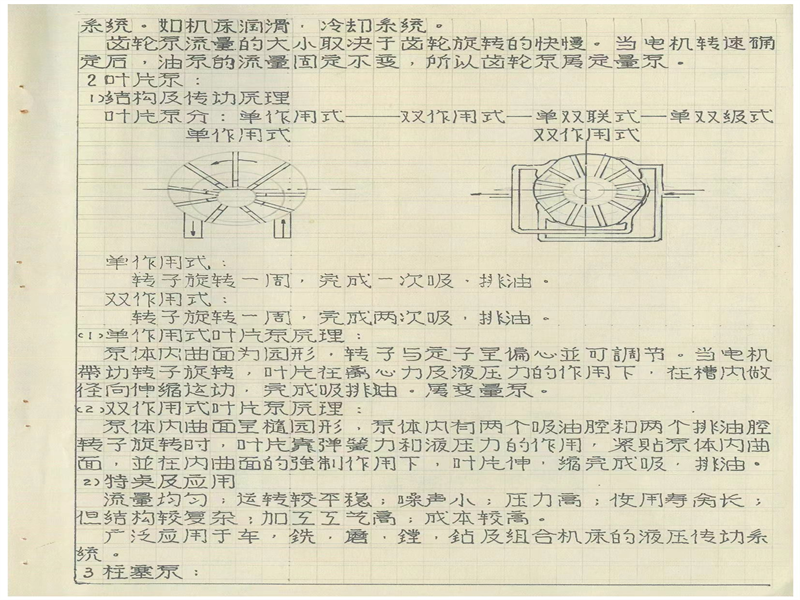 系统。如机床润滑，冷却系统。
齿轮泵流量的大小取决于齿轮旋转的快慢。当电机转速确
定后，油泵的流量固定不变，所以齿轮泵属定量泵。
2 叶片泵：
1)结构及传动原理
叶片泵分：单作用式——双作用式—单双联式—单双级式
单作用式 双作用式
单作用式：
转子旋转一周，完成一次吸、排油。
双作用式：
转子旋转一周，完成两次吸，排油。
(1)单作用式叶片泵原理：
泵体内曲面为园形，转子与定子呈偏心並可調节。当电机
帶动转子旋转，叶片在离心力及液压力的作用下，在槽内做
径向伸缩运动，完成吸排油。属变量泵。
(2)双作用式叶片泵原理：
泵体内曲面呈橢园形，泵体内有两个吸油腔和两个排油腔
转子旋转时，叶片靠弹簧力和液压力的作用，紧贴泵体内曲
面，並在内曲面的強制作用下，叶片伸，缩完成吸，排油。
2)特奌及应用
流量均匀；运转较平稳；噪声小；压力高；使用寿命长；
但结构较复杂；加工工艺高；成本较高。
广泛应用于车，銑，磨，鏜，鉆及组合机床的液压传动系
统。
3 柱塞泵：